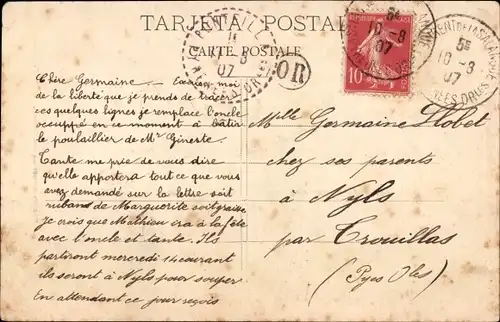 TARJETA POSTAL
CARTE POSTALE
OR
10
10-8
07
5E
10-8
07
8
07
Chère Germaine. Excusez moi
de la liberté que je prends de tracer
ces quelques lignes je remplace l'oncle
occuppé en ce moment à bâtir
le poulaillier de Mr Gineste.
Tante me prie de vous dire
qu'elle apportera tout ce que vous
avez demandé sur la lettre soit
rubans de Marguerite soit
je crois que Mathieu ira à la fête
avec l'oncle et tante. Ils
partiront mercredi 14 courant
ils seront à Nyls pour souper
En attendant ce jour reçois
Mlle Germaine Llobet
chez ses parents
à Nyls
par Trouillas
(Pyes Oles)